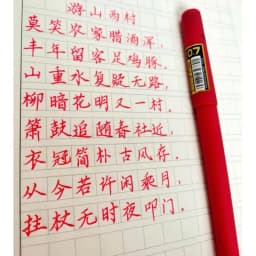 游山西村
莫笑农家腊酒浑，
丰年留客足鸡豚。
山重水复疑无路，
柳暗花明又一村。
箫鼓追随春社近，
衣冠简朴古风存。
从今若许闲乘月，
拄杖无时夜叩门。
0.7